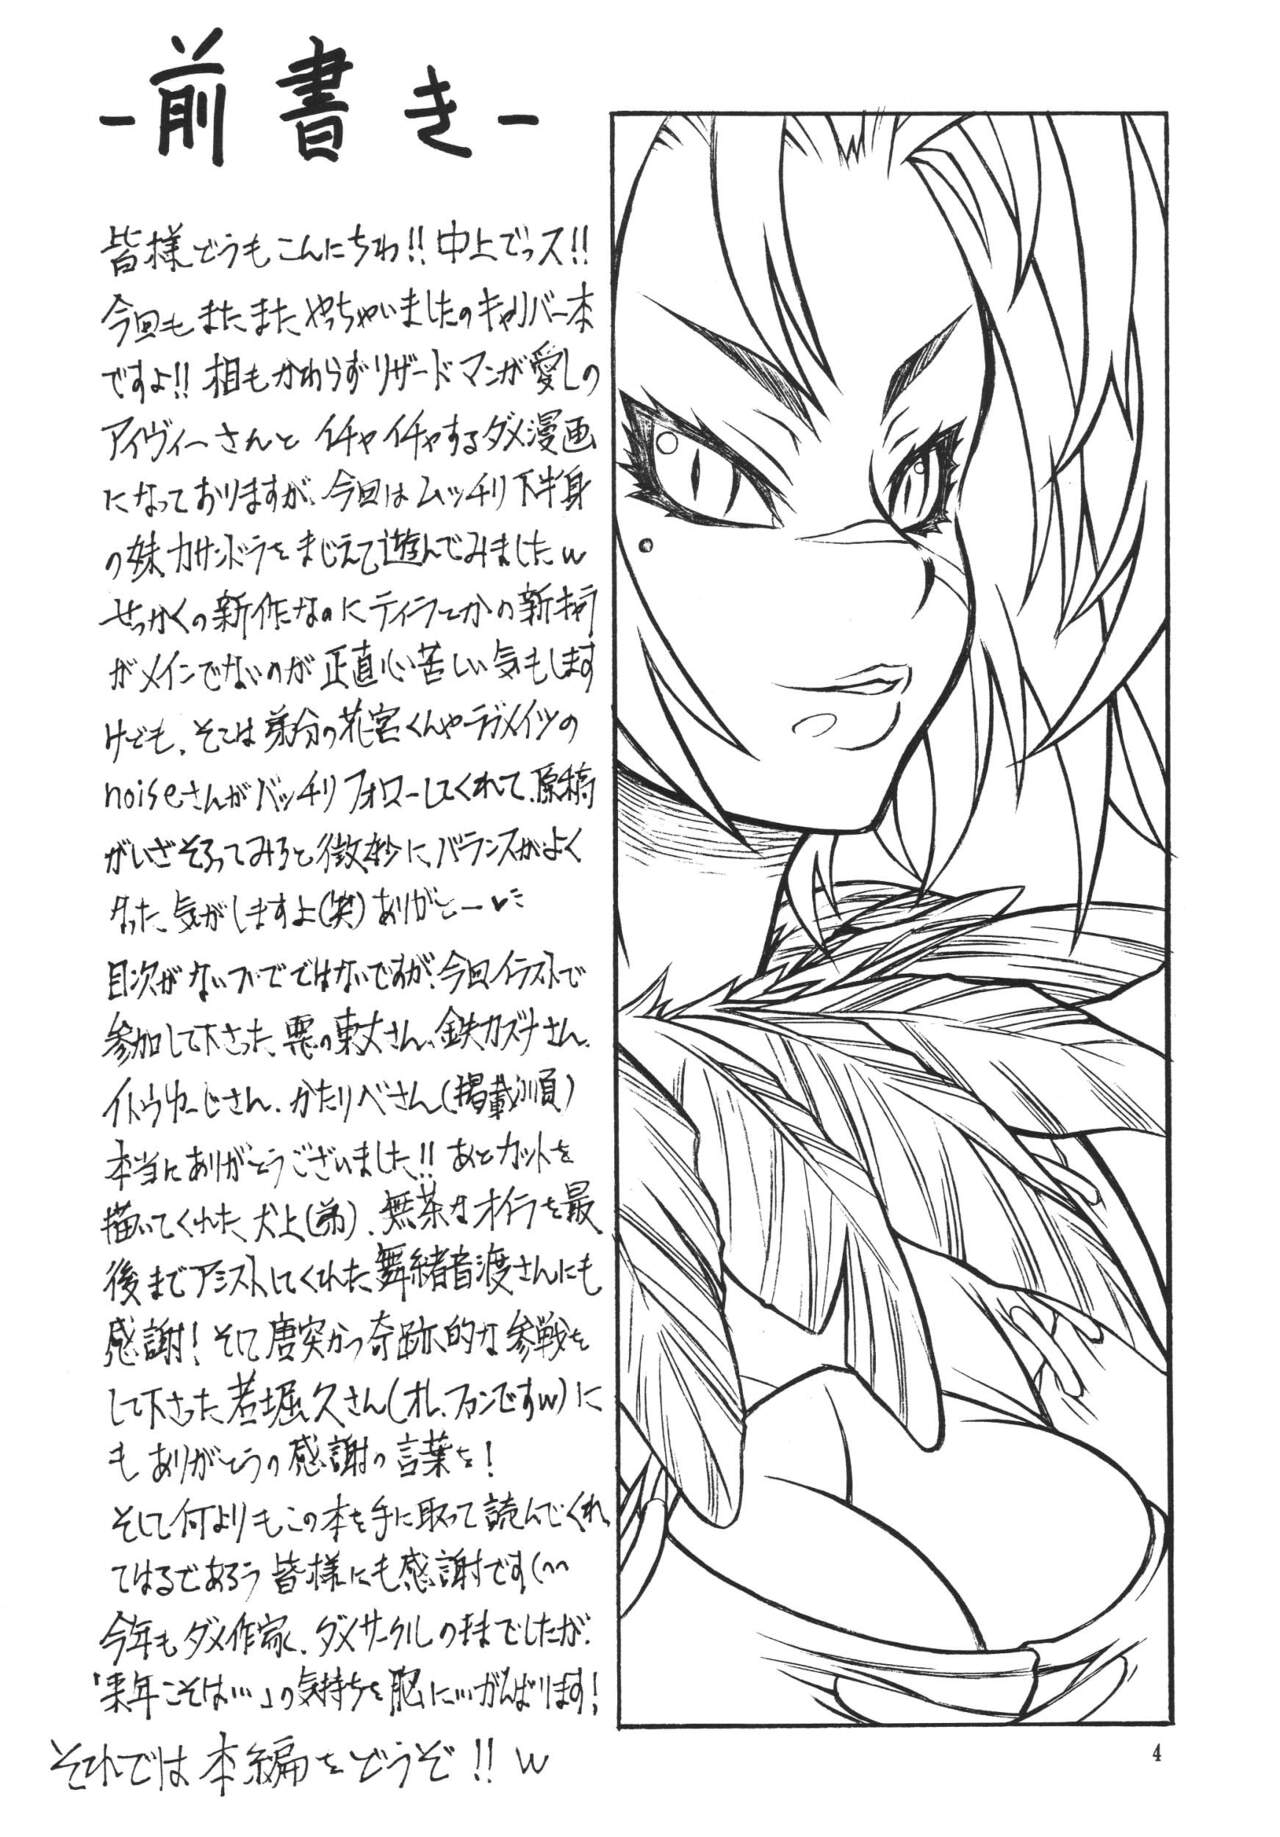 -前書き-
皆様どうもこんにちわ!!中上でっス!!
今回もまたまたやっちゃいましたのキャリバー本
ですよ!!相もかわらずリザードマンが愛しの
アイヴィーさんとイチャイチャするダメ漫画
になっておりますが、今回はムッチリ下半身
の妹、カサンドラをまじえて遊んでみましたw
せっかくの新作なのにティラとかの新キャラ
がメインでないのが正直心苦しい気もします
けども、そこは弟分の花宮くんやデブメイツの
noiseさんがバッチリフォローしてくれて、原稿
がいざそろってみると微妙に、バランスがよく
なった、気がしますよ(笑)ありがとー♥
目次がないワケではないですが、今回イラストで
参加して下さった、悪の東丈さん、鉄カズナさん、
イトウゆーじさん、かたりべさん(掲載順)
本当にありがとうございました!!あとカットを
描いてくれた、犬上(弟)、無茶なオイラを最
後までアシストしてくれた舞緒音渡さんにも
感謝!そして唐突かつ奇跡的な参戦を
して下さった若堀久さん(オレ、ファンですw)に
もありがとうの感謝の言葉を!
そして何よりもこの本を手に取って読んでくれ
てはるであろう皆様にも感謝です(^^
今年もダメ作家、ダメサークルのままでしたが、
「来年こそは…」の気持ちを胸に…がんばります!
それでは本編をどうぞ!!w
4